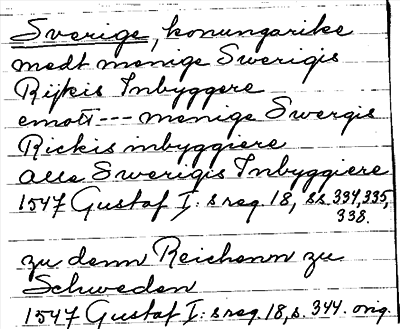 Sverige, konungarike
medt menige Swerigis
Rijkis Inbyggere
emott --- menige Swergis
Rickis inbyggiere
alle Swerigis Inbyggiere
1547 Gustaf I: s reg. 18, ss. 334, 335,
338.
zu denn Reichenn zu
Schweden
1547 Gustaf I: s reg. 18, s. 344. orig.